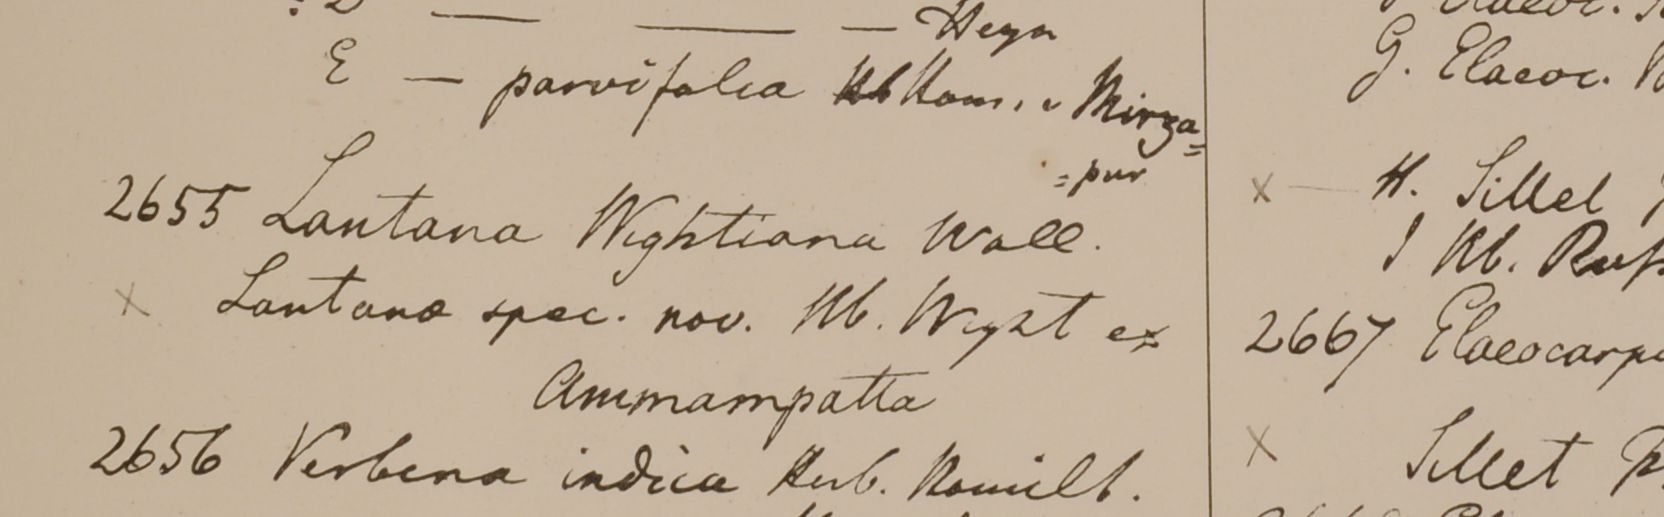 D — — — Heyn
E — parvifolia Hb Ham. e Mirza=
=pur
2655 Lantana Wightiana Wall.
x Lantana spec. nov. Hb. Wight ex
Ammampatta
2656 Verbena indica Herb. Hamilt.
G. Elaeoc.
x — H. Sillet
I Hb. Ruß
2667 Elaeocarpu
x Sillet